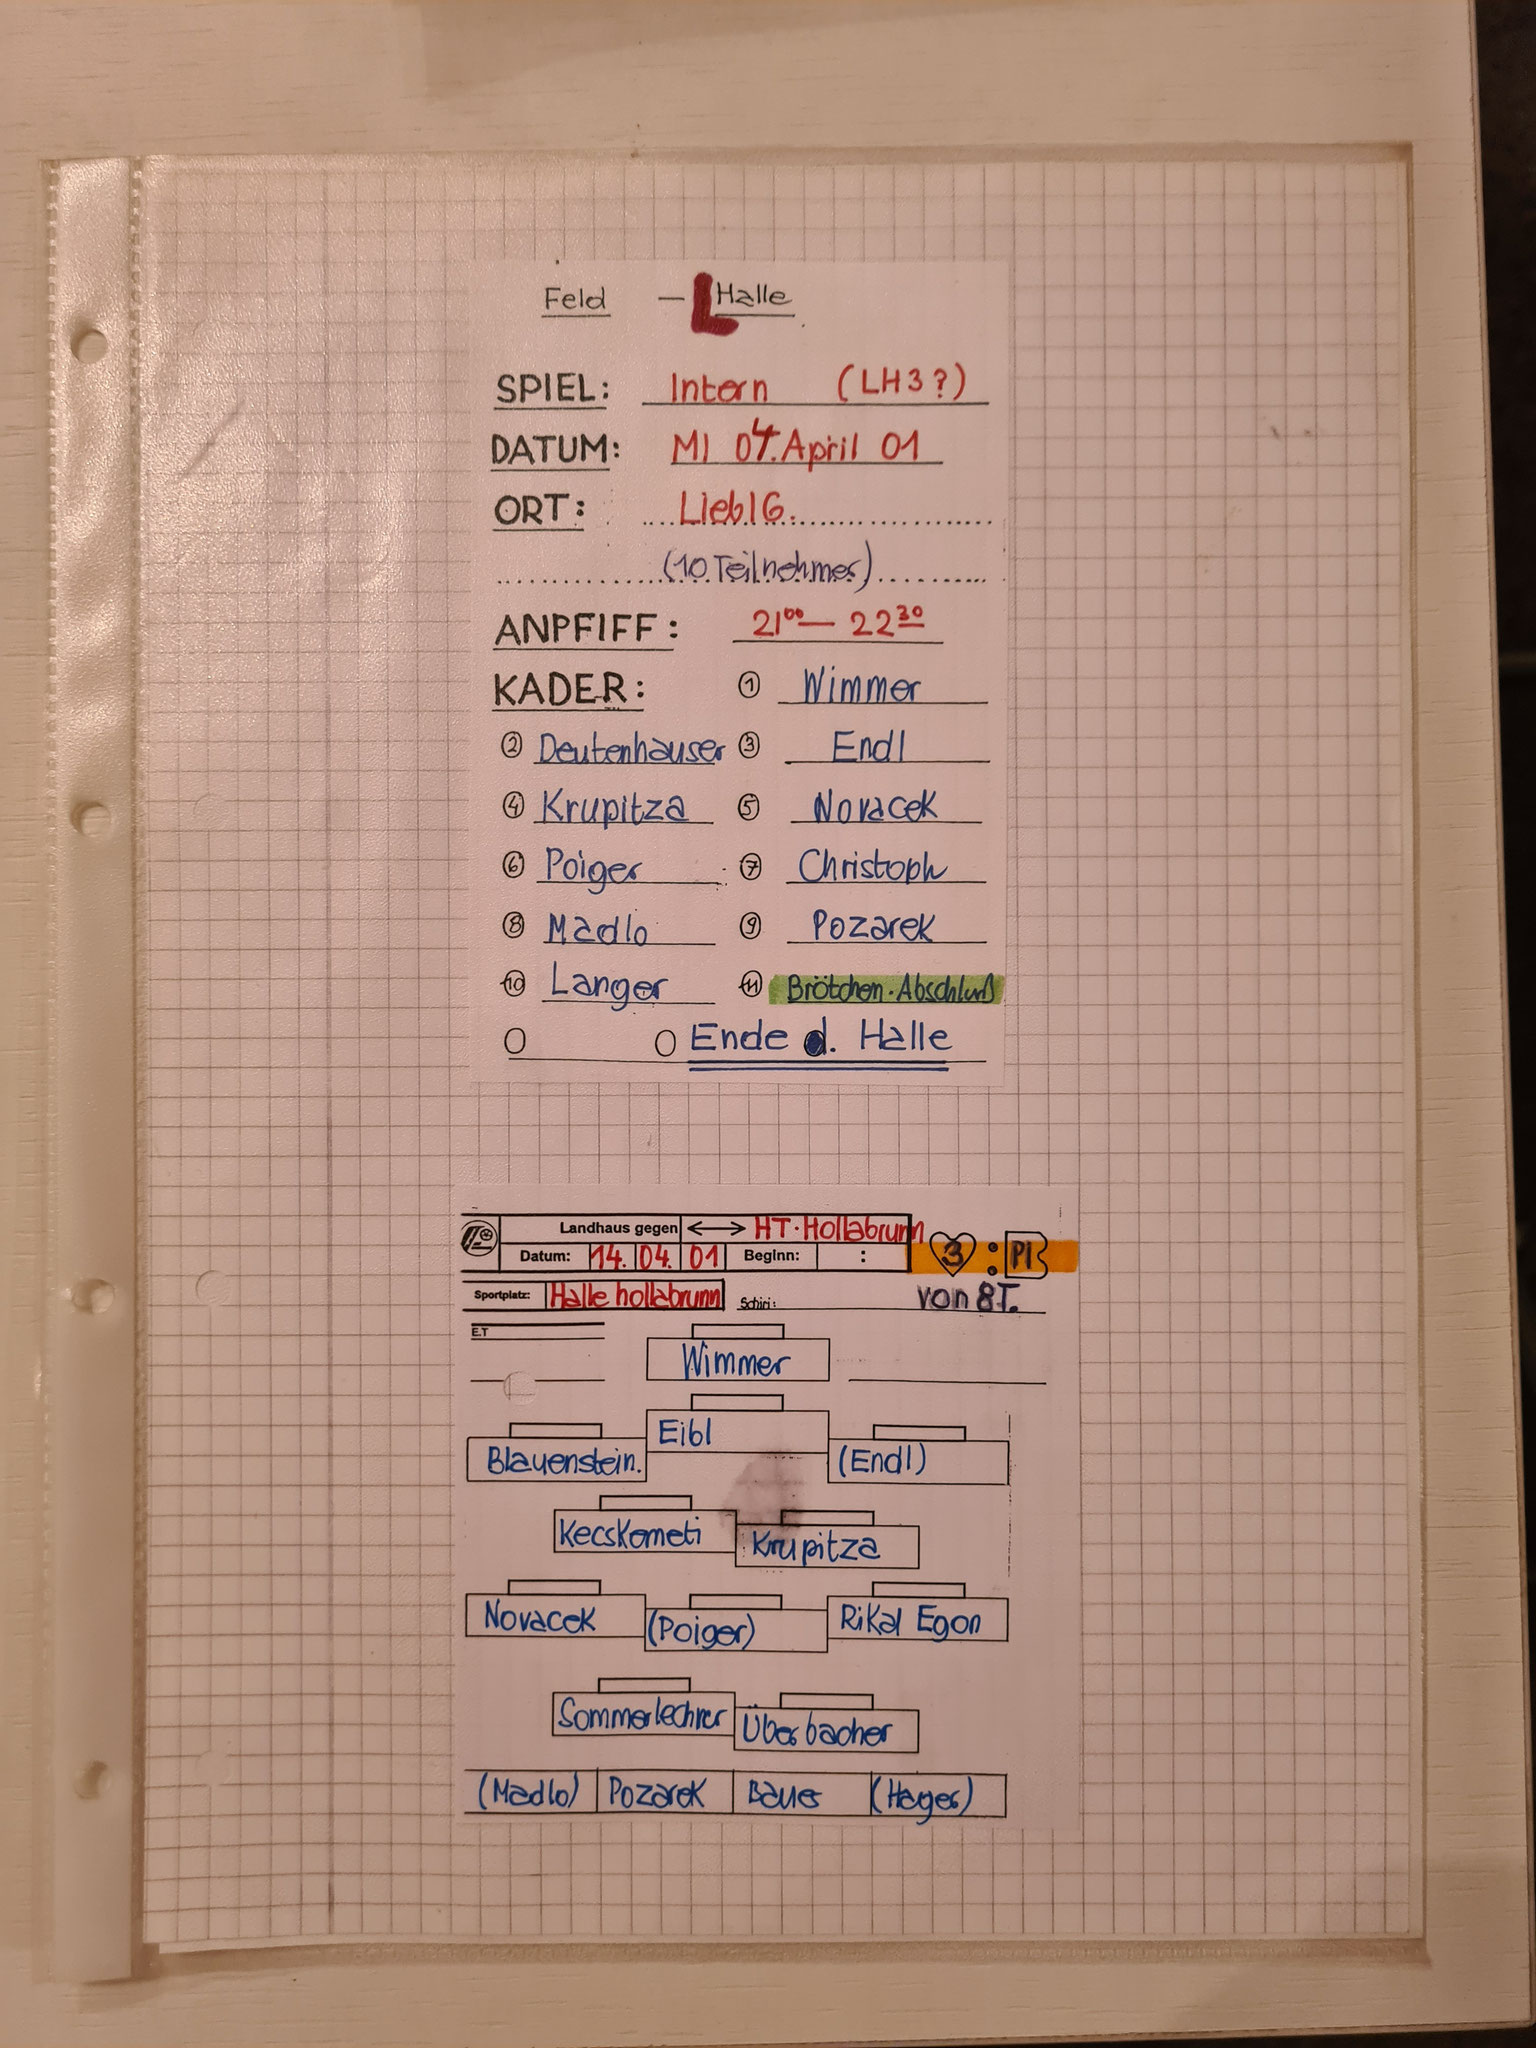 Feld — L Halle
SPIEL: Intern (LH3?)
DATUM: MI 04. April 01
ORT: LieblG.
(10 Teilnehmer)
ANPFIFF: 21⁰⁰ — 22³⁰
KADER: ① Wimmer
② Deutenhauser ③ Endl
④ Krupitza ⑤ Novacek
⑥ Poiger ⑦ Christoph
⑧ Madlo ⑨ Pozarek
⑩ Langer ⑪ Brötchen-Abschluß
Ende d. Halle
Landhaus gegen ↔ HT-Hollabrunn
Datum: 14. 04. 01 Beginn: : 3 : Pl
Sportplatz: Halle hollabrunn Schiri: von 8T.
E.T
Wimmer
Eibl
Blauenstein. (Endl)
Kecskemeti Krupitza
Novacek (Poiger) Rikal Egon
Sommerlechner Überbacher
(Madlo) Pozarek Bauer (Hager)